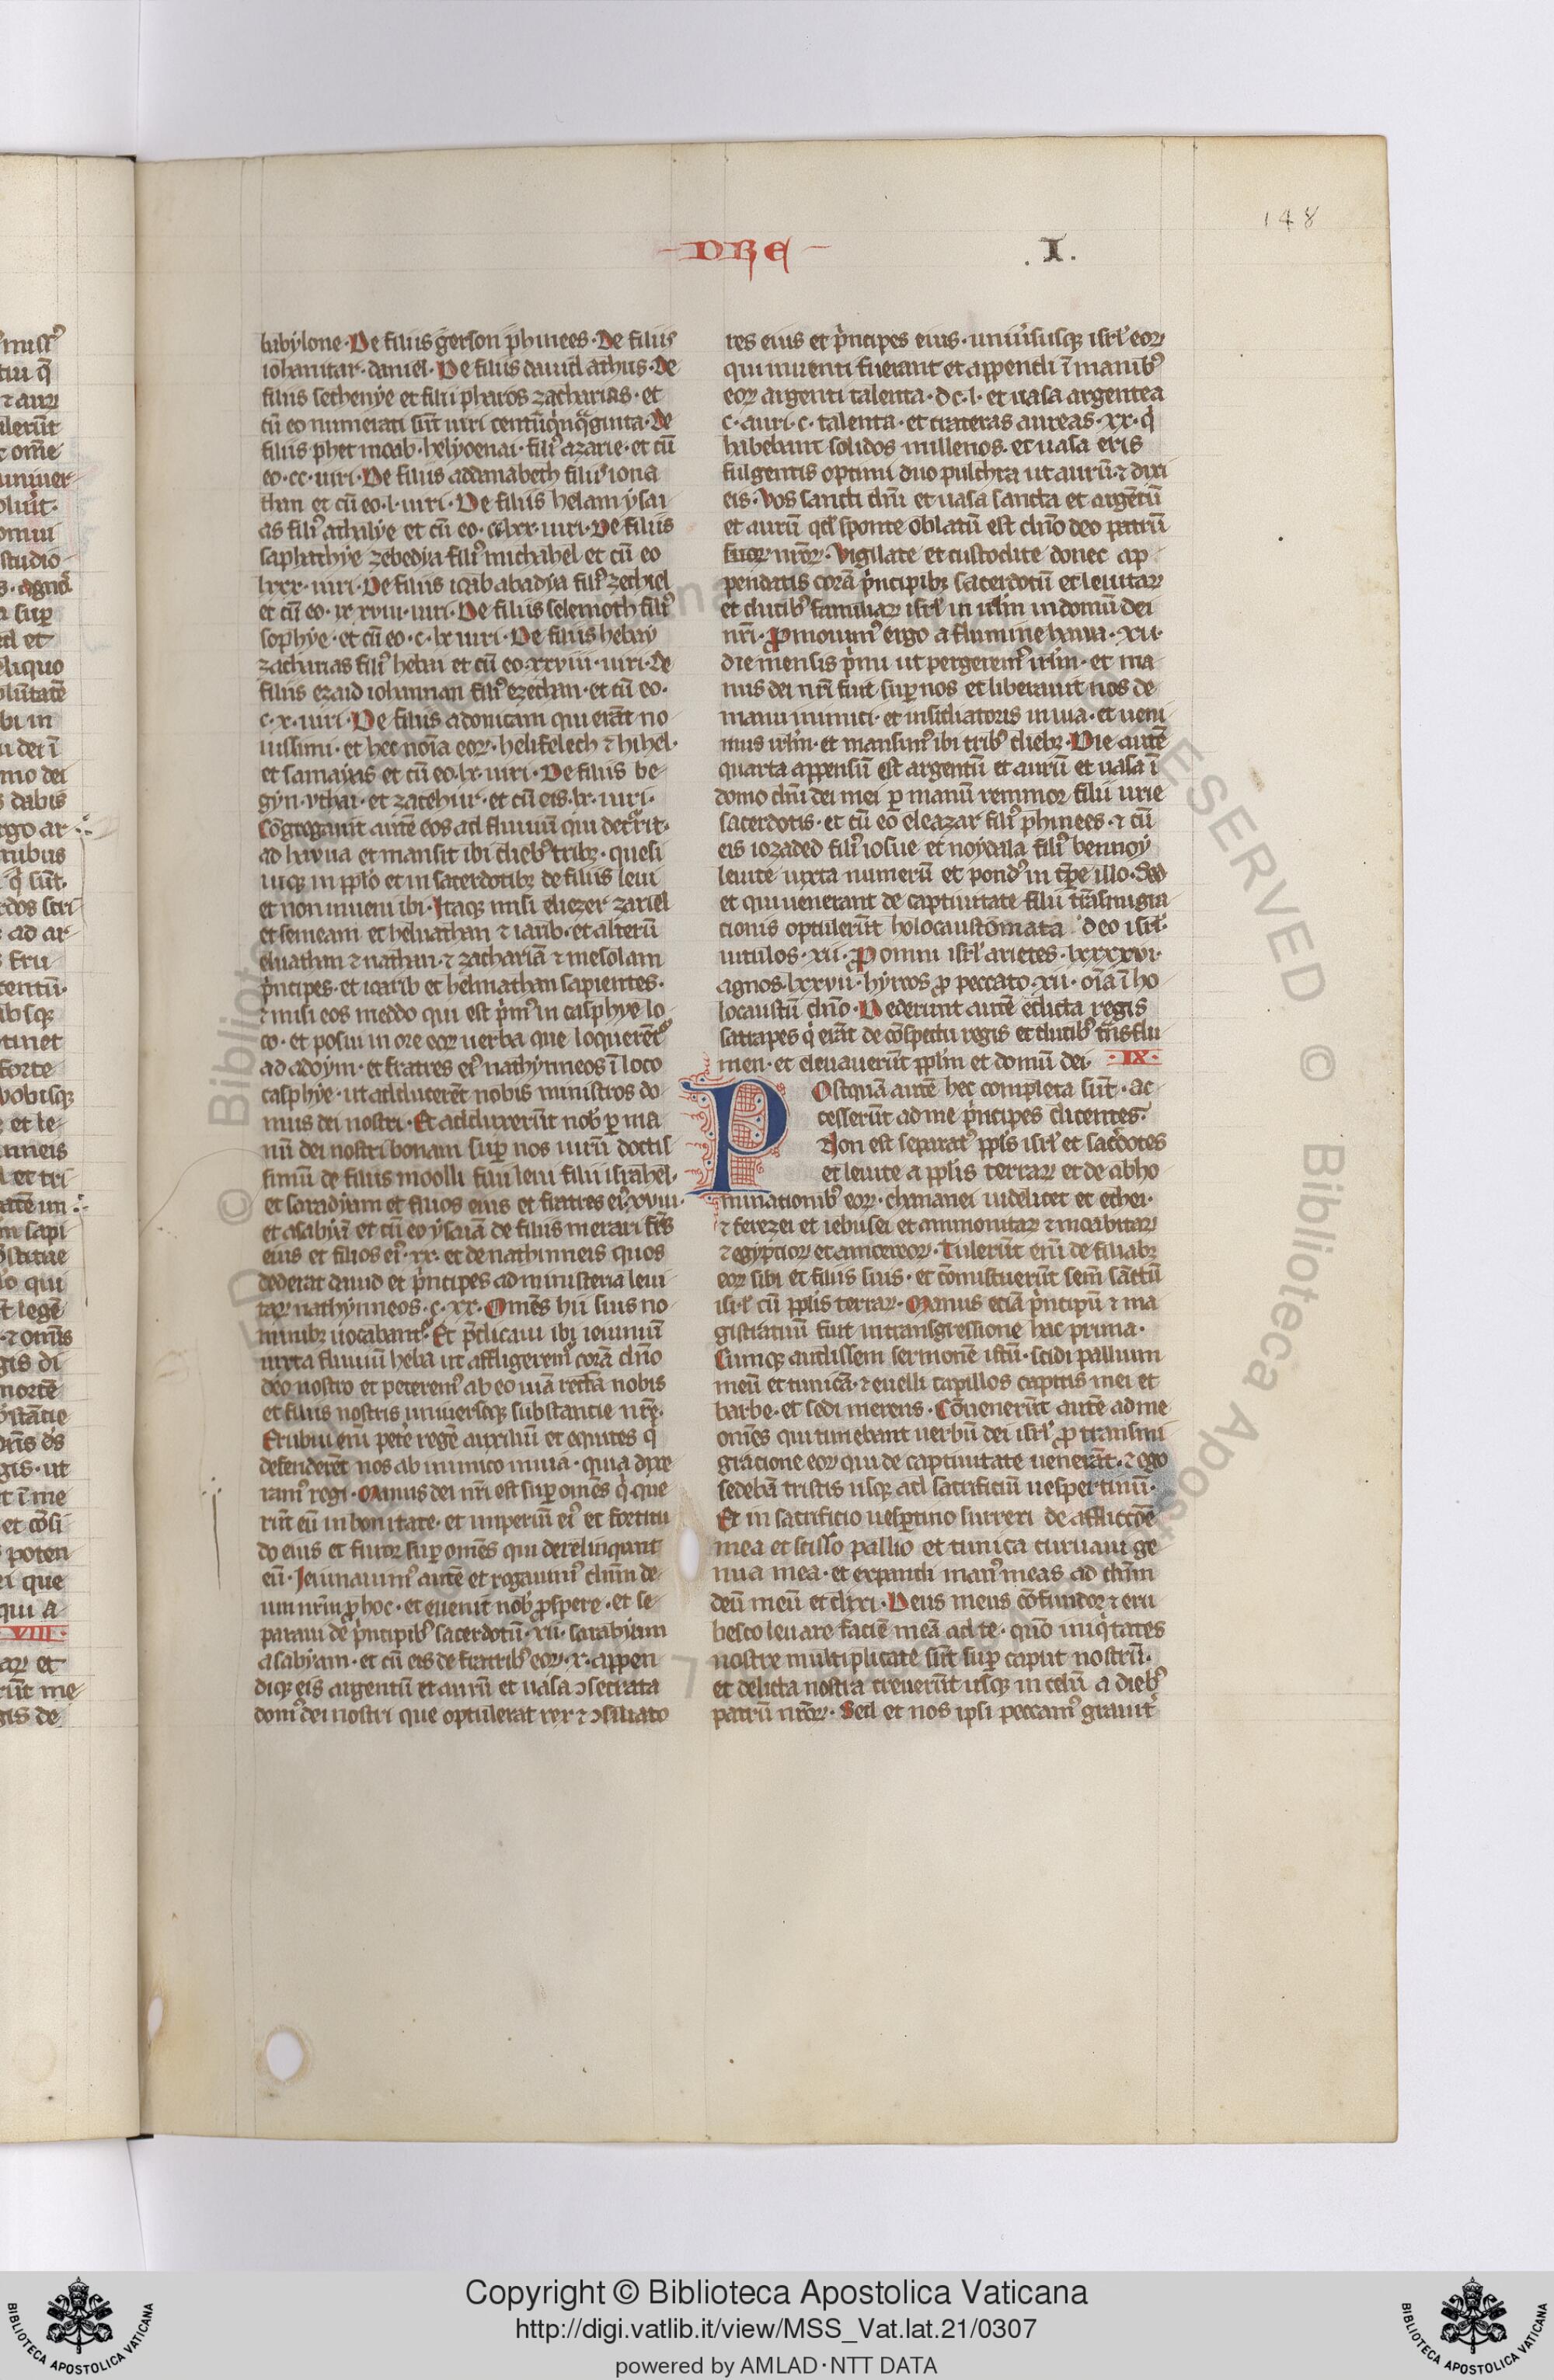 DRE
.I.
148
babylone · De filiis gerson phinees · De filiis
iohamitar · daniel · De filiis dauid athus · De
filiis sechenye et filii pharos zacharias · et
cū eo numerati sūt uiri centūq̇nq̈ginta · De
filiis phet moab · helyoenai · filiꝰ azarie · et cū
eo · cc · uiri · De filiis adanabeth filiꝰ iona
than et cū eo · l · uiri · De filiis helam ysai
as filiꝰ athalye et cū eo · lxx · uiri · De filiis
saphathye zebedya filiꝰ michahel et cū eo
lxxx · uiri · De filiis icab abadya filiꝰ zechiel
et cū eo · xviii · uiri · De filiis selemoth filiꝰ
sophye · et cū eo · c · lx uiri · De filiis hebay
zacharias filiꝰ hebai et cū eo · xxviii · uiri · De
filiis ezaid iohannan filiꝰ ezechan · et cū eo ·
c · x · uiri · De filiis adonicam qui erāt no
uissimi · et hec noīa eoꝝ · helifelech ⁊ hihel ·
et samayas et cū eo · lx · uiri · De filiis be
gyn · vthai · et zacehur · et cū eis · lx · uiri ·
Cōgregaui autē eos ad fluuiū qui decͣrit ·
ad havua et mansit ibi diebꝰ tribꝫ · quesi
uiqꝫ in pplo et in sacerdotibꝫ de filiis leui
et non inueni ibi · Itaqꝫ misi eliezer zariel
et semeam et helnathan ⁊ iarib · et alterū
elnathan ⁊ nathan · ⁊ zachariā ⁊ mesolam
pͥncipes · et icarib et helnathan sapientes ·
⁊ misi eos meddo qui est pͥmꝰ in casphye lo
co · et posui in ore eoꝝ uerba que loquerētᷣ
ad adoym · et fratres eiꝰ nathynneos ī loco
casphye · ut adducerēt nobis ministros do
mus dei nostri · Et adduxerūt nob̕ ꝑ ma
nū dei nostri bonam suꝑ nos uirū doctis
simū de filiis moolli filii leui filii israhel ·
et saradyam et filios eius et fratres eiꝰ xviii ·
et asabyā et cū eo ysaiā de filiis merari fr̄es
eius et filios eiꝰ · xx · et de nathinneis quos
dederat dauid et pͥncipes ad ministeria leui
taꝝ nathynneos · c · xx · Omēs hii suis no
minibꝫ uocabantᷣ · Et p̄dicaui ibi ieiuniū
iuxta fluuiū heba ut affligeremꝰ corā dn̄o
deo nostro et peteremꝰ ab eo uiā rectā nobis
et filiis nostris uniuerseqꝫ substantie nr̄e ·
Erubui eni petͤ regē auxiliū et equites qͥ
defenderēt nos ab inimico in uia · quia dixe
ramꝰ regi · Manus dei nr̄i est suꝑ omēs qͥ que
rūt eū in bonitate · et imperiū eiꝰ et fortitu
do eius et furor suꝑ omēs qui derelinqunt
eū · Ieiunauimꝰ autē et rogauimꝰ dn̄m de
um nr̄m ꝓ hoc · et euenit nob̕ ꝓspere · et se
paraui de pͥncipibꝰ sacerdotū · xii · sarabyam
asabyam · et cū eis de fratribꝰ eoꝝ · x · appen
diqꝫ eis argentū et aurū et uasa ↄsecrata
domꝰ dei nostri que optulerat rex ⁊ ↄsiliato
res eius et pͥncipes eius · uniūsusqꝫ isrl̕ eoꝝ
qui inuenti fuerant et appendi ī manibꝰ
eoꝝ argenti talenta · d c · l · et uasa argentea
c · auri · c · talenta · et crateras aureas · xx · qͥ
habebant solidos millenos · et uasa eris
fulgentis optimi duo pulchra ut aurū · ⁊ dixi
eis · Vos sancti dn̄i et uasa sancta et argētū
et aurū qd̕ sponte oblatū est dn̄o deo patrū
suoꝝ nr̄oꝝ · Vigilate et custodite donec ap
pendatis corā pͥncipibꝫ sacerdotū et leuitaꝝ
et ducibꝰ familiaꝝ isrl̕ in irl̄m in domū dei
nr̄i · Pmouimꝰ ergo a flumine haua · xii ·
die mensis pͥmi ut pergeremꝰ irl̄m · et ma
nus dei nr̄i fuit suꝑ nos et liberauit nos de
manu inimici · et insidiatoris in uia · et ueni
mus irl̄m · et mansimꝰ ibi tribꝰ diebꝫ · Die autē
quarta appensū est argentū et aurū et uasa ī
domo dn̄i dei mei ꝑ manū remmoꝝ filii urie
sacerdotis · et cū eo eleazar filiꝰ phinees · ⁊ cū
eis iozaded filiꝰ iosue et noydala filiꝰ bennoy
leuite iuxta numerū et pondꝰ in tꝑe illo · Sed
et qui uenerant de captiuitate filii trāsmigra
cionis optulerūt holocaustomata deo isrl̕ ·
uitulos · xii · P omni isrl̕ arietes · lxxxxvi ·
agnos · lxxvii · hyrcos ꝓ peccato · xii · oīa ī ho
locaustū dn̄o · Dederunt autē edicta regis
satrapes qͥ erāt de cōspectu regis et ducibꝰ tn̄sflu
men · et eleuauerūt ppl̄m et domū dei · · IX ·
POstquā autē hec completa sūt · ac
cesserūt ad me pͥncipes dicentes ·
Non est separatꝰ ppl̕s isrl̕ et sac̕dotes
et leuite a ppl̕is terraꝝ et de abho
minationibꝰ eoꝝ · chananei uidelicet et ethei ·
⁊ ferezei et iebusei et ammonitaꝝ ⁊ moabitaꝝ
⁊ egyptioꝝ et amorreoꝝ · Tulerūt eni de filiabꝫ
eoꝝ sibi et filiis suis · et cōmiscuerūt sem̄ sāctū
isrl̕ cū ppl̕is terraꝝ · Manus eciā pͥncipū ⁊ ma
gistratuū fuit in transgressione hac prima ·
Cumqꝫ audissem sermonē istū · scidi pallium
meū et tunicā · ⁊ euelli capillos capitis mei et
barbe · et sedi merens · Cōuenerūt autē ad me
omēs qui timebant uerbū dei isrl̕ ꝓ transmi
gracione eoꝝ qui de captiuitate uenerāt · ⁊ ego
sedebā tristis usqꝫ ad sacrificiū uespertinū ·
Et in sacrificio uesꝑtino surrexi de afflictōe
mea et scisso pallio et tunica curuaui ge
nua mea · et expandi manꝰ meas ad dn̄m
deū meū et dixi · Deus meus cōfundor ⁊ eru
besco leuare faciē meā ad te · qm̄ iniqͥtates
nostre multiplicate sūt suꝑ caput nostrū ·
et delicta nostra creuerūt usqꝫ in celū a diebꝰ
patrū nr̄oꝝ · Sed et nos ipsi peccamꝰ grauit̕
Copyright © Biblioteca Apostolica Vaticana
http://digi.vatlib.it/view/MSS_Vat.lat.21/0307
powered by AMLAD·NTT DATA
BIBLIOTECA APOSTOLICA VATICANA
BIBLIOTECA APOSTOLICA VATICANA